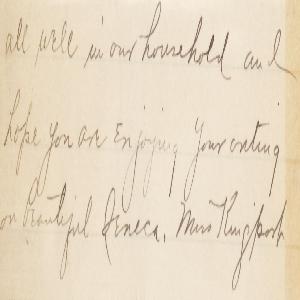 all well in our household and
hope you are Enjoying Your outing
on Beautiful Seneca. Miss